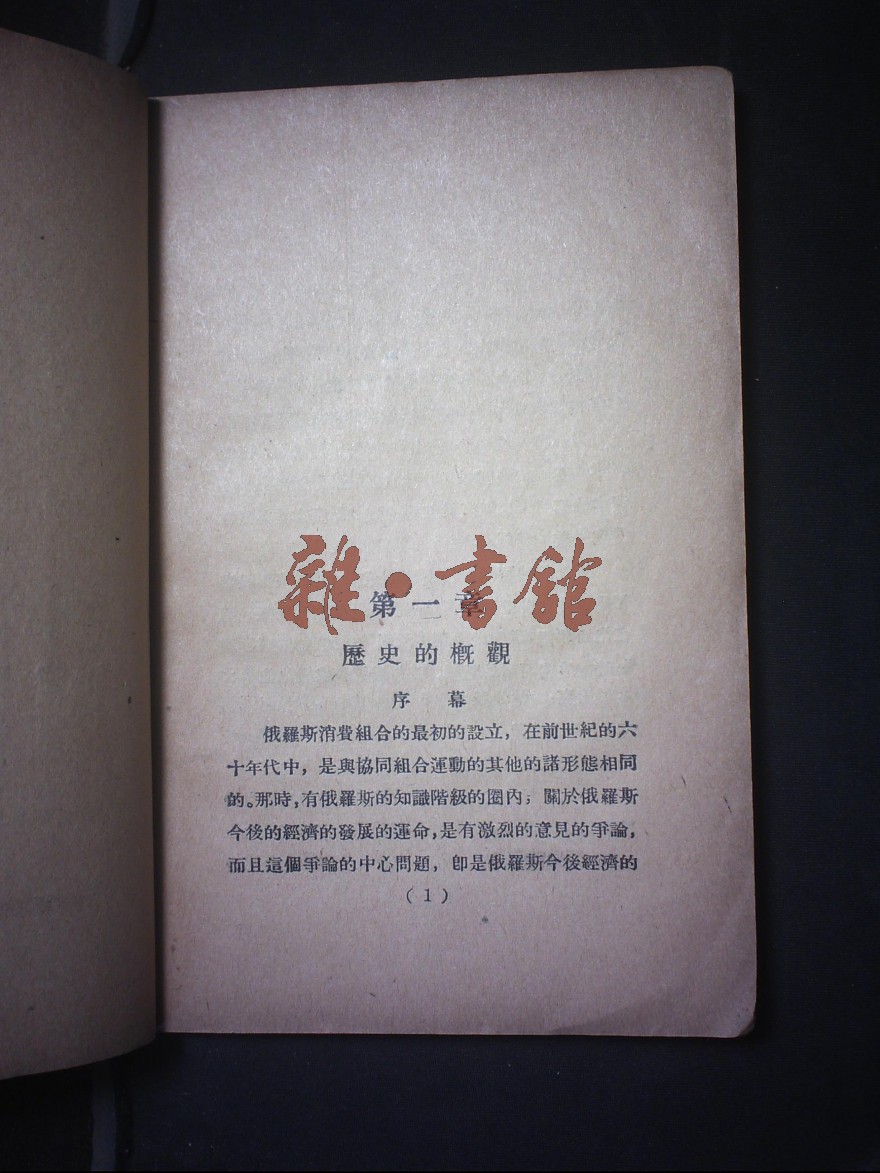 雜·書館
第一章
歷史的概觀
序幕
俄羅斯消費組合的最初的設立，在前世紀的六
十年代中，是與協同組合運動的其他的諸形態相同
的。那時，有俄羅斯的知識階級的圈內；關於俄羅斯
今後的經濟的發展的運命，是有激烈的意見的爭論，
而且這個爭論的中心問題，卽是俄羅斯今後經濟的
(1)